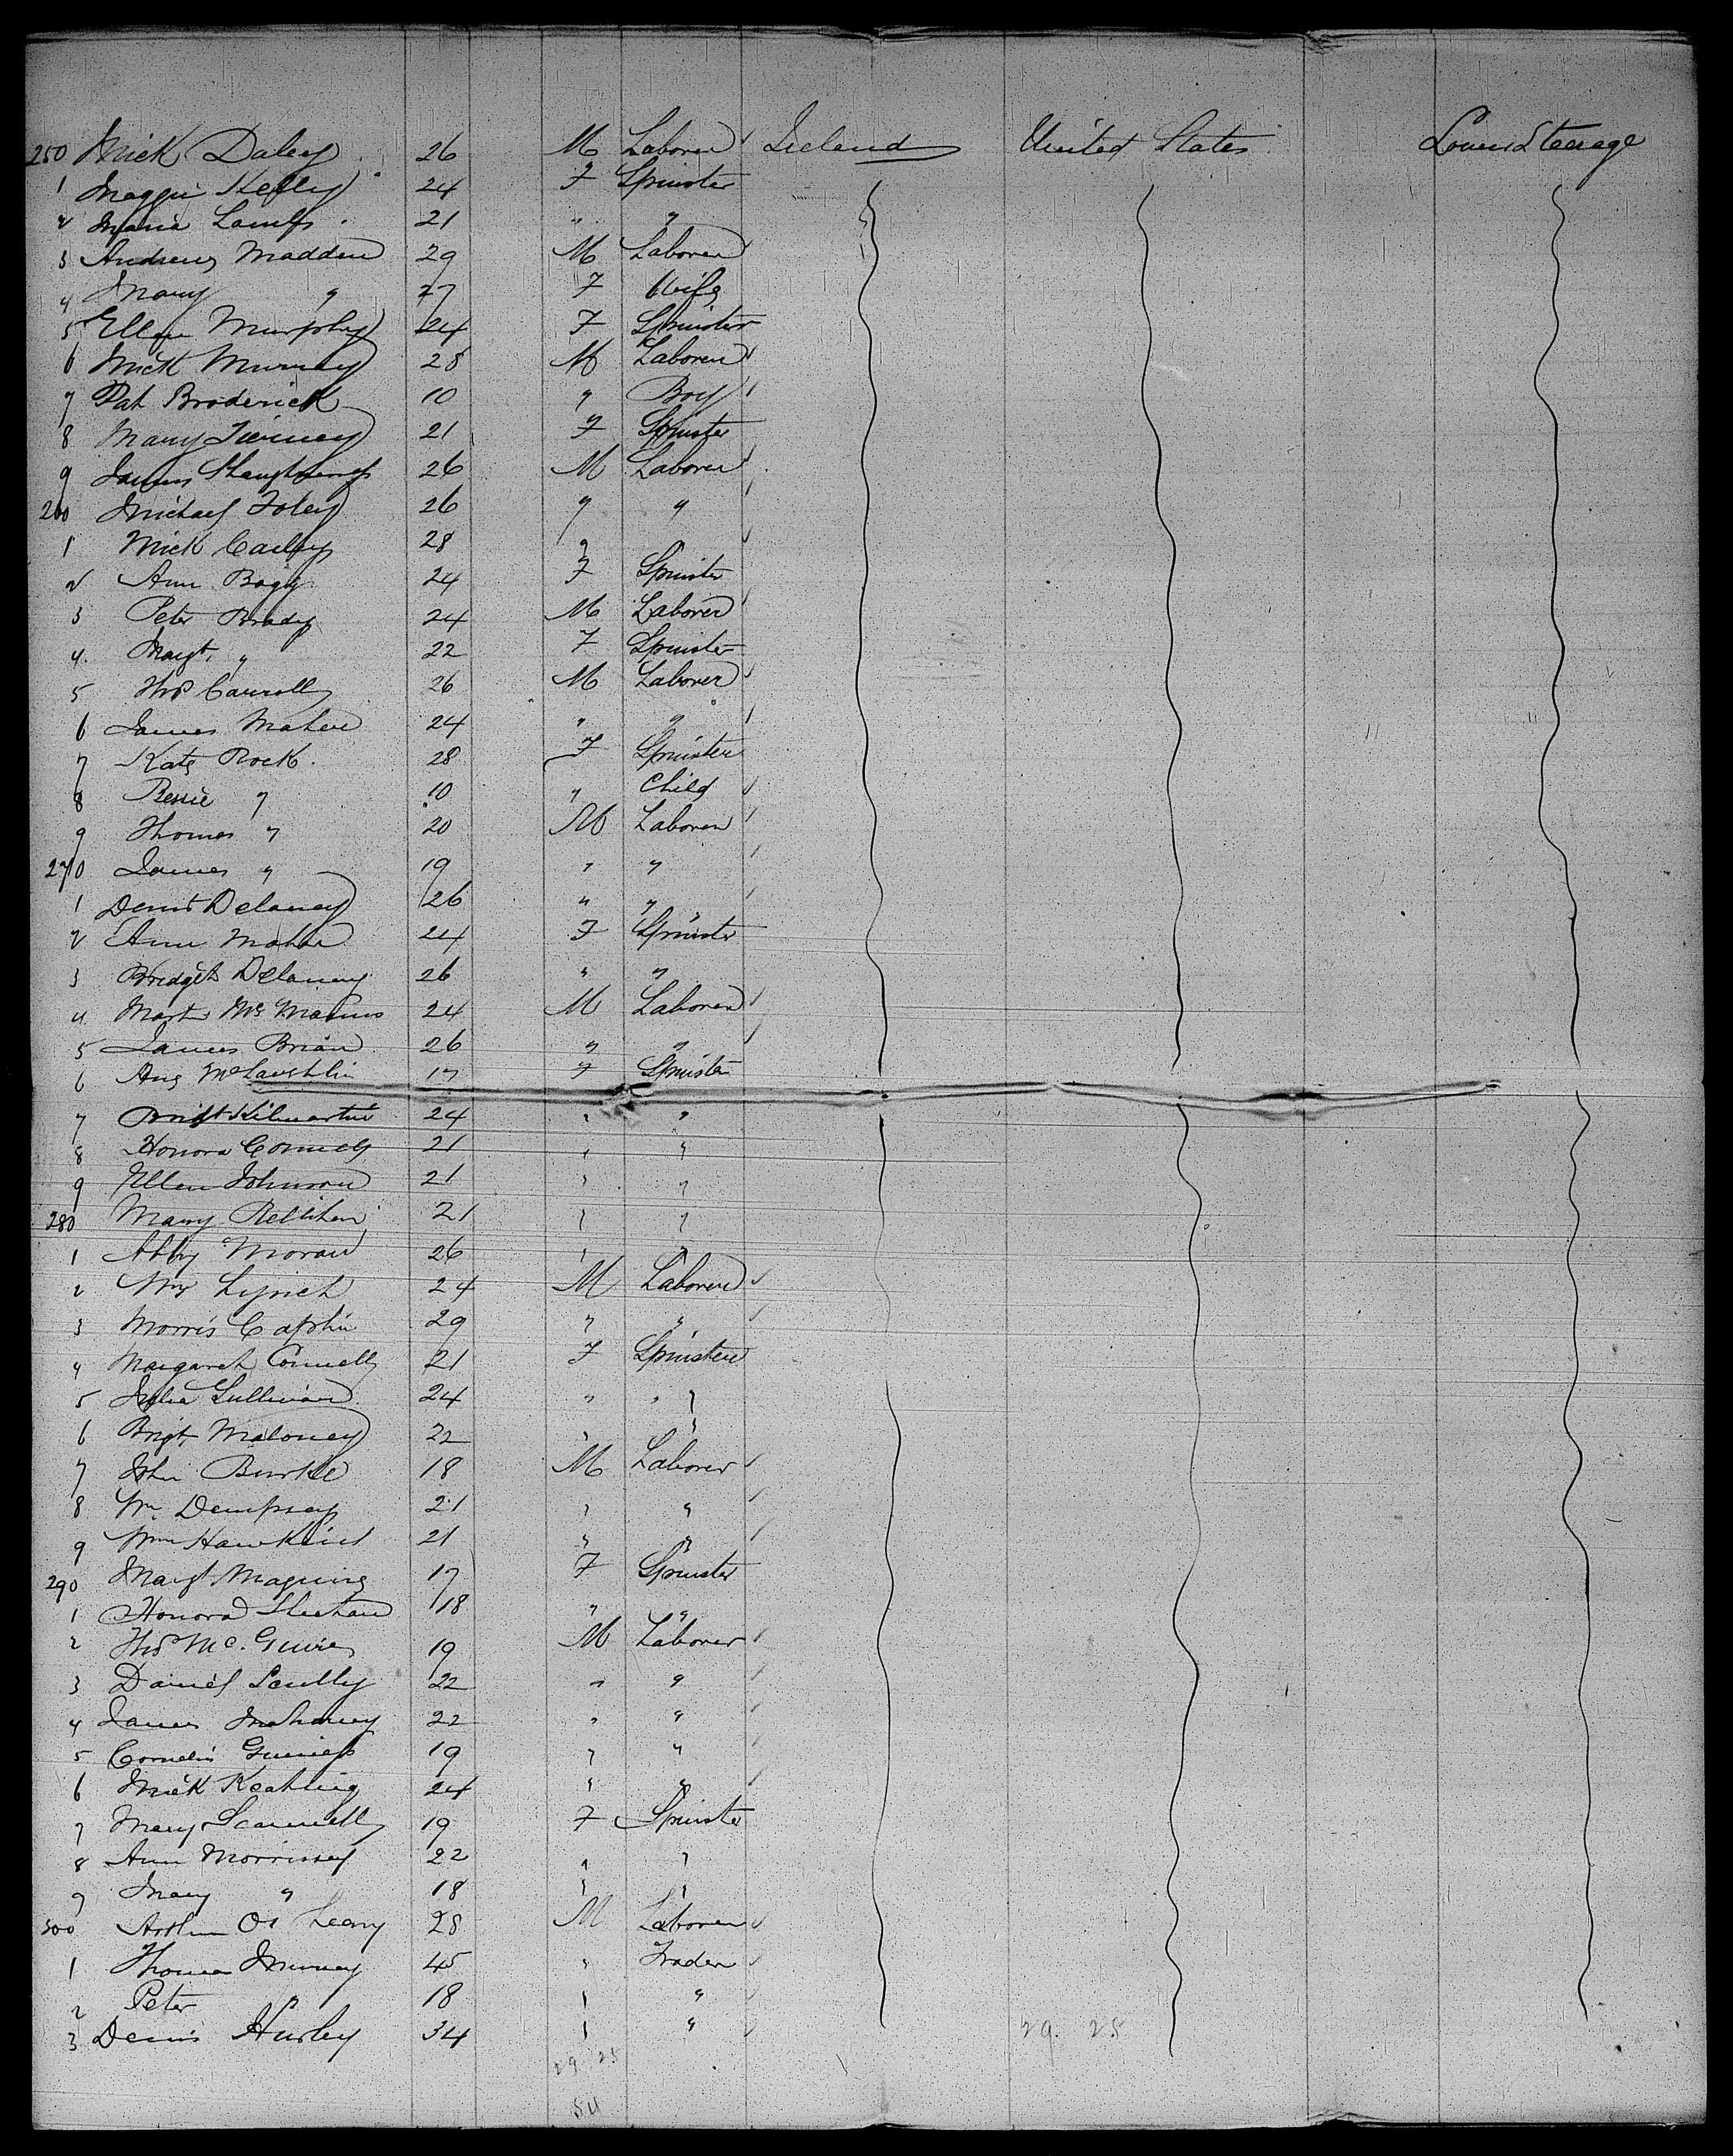 250 Mick Daley 26 M Laborer Ireland United States Lower Steerage
1 Maggie Kelly 24 F Spinster
2 Maria 21 " "
3 Andrew Madden 29 M Laborer
4 Mary " 27 F Wife
5 Ellen Murphy 24 F Spinster
6 Mick Murray 28 M Laborer
7 Pat Broderick 10 " Boy
8 Mary Tierney 21 F Spinster
9 James 26 M Laborer
260 Michael Foley 26 " "
1 Mick 28 "
2 Ann 24 F Spinster
3 Peter Brady 24 M Laborer
4 Margt. " 22 F Spinster
5 Thos Carroll 26 M Laborer
6 James Maher 24 " "
7 Kate Rock 28 F Spinster
8 Bessie " 10 " Child
9 Thomas " 20 M Laborer
270 James " 19 " "
1 Denis Delaney 26 " "
2 Ann Maher 24 F Spinster
3 Bridget Delaney 26 " "
4 Mart McManus 24 M Laborer
5 James Brian 26 " "
6 McLaughlin 17 F Spinster
7 Bridt Kilmartin 24 " "
8 Honora Connely 21 " "
9 Ellen Johnson 21 " "
280 Mary 21 " "
1 Abby Moran 26 " "
2 Wm Lynch 24 M Laborer
3 Morris 29 " "
4 Margaret Connelly 21 F Spinster
5 Julia Sullivan 24 " "
6 Brigt Maloney 22 " "
7 John Burke 18 M Laborer
8 Wm Dempsey 21 " "
9 Wm Hawkins 21 " "
290 Margt Maguire 17 F Spinster
1 Honora Sheehan 18 " "
2 Thos McGuire 19 M Laborer
3 Daniel Scully 22 " "
4 James Mahoney 22 " "
5 Cornelius 19 " "
6 Mick Keating 24 " "
7 Mary Scannell 19 F Spinster
8 Ann Morrissey 22 " "
9 Mary " 18 " "
300 Arthur O'Leary 28 M Laborer
1 Thomas Murray 45 " Trader
2 Peter " 18 " "
3 Denis Hurley 34 " "
29. 25
29 25
54